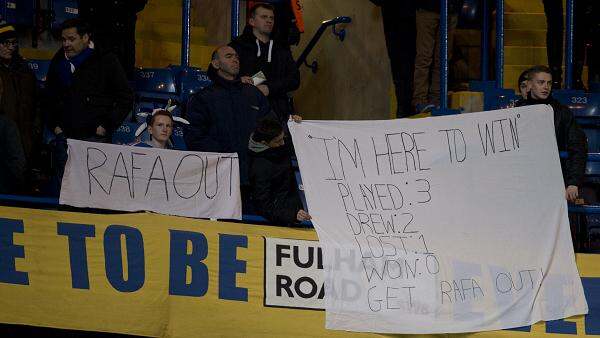 337
323
RAFA OUT
"I'M HERE TO WIN"
PLAYED:3
DREW:2
LOST:1
WON:0
GET RAFA OUT!
E TO BE
FULHA
ROAD